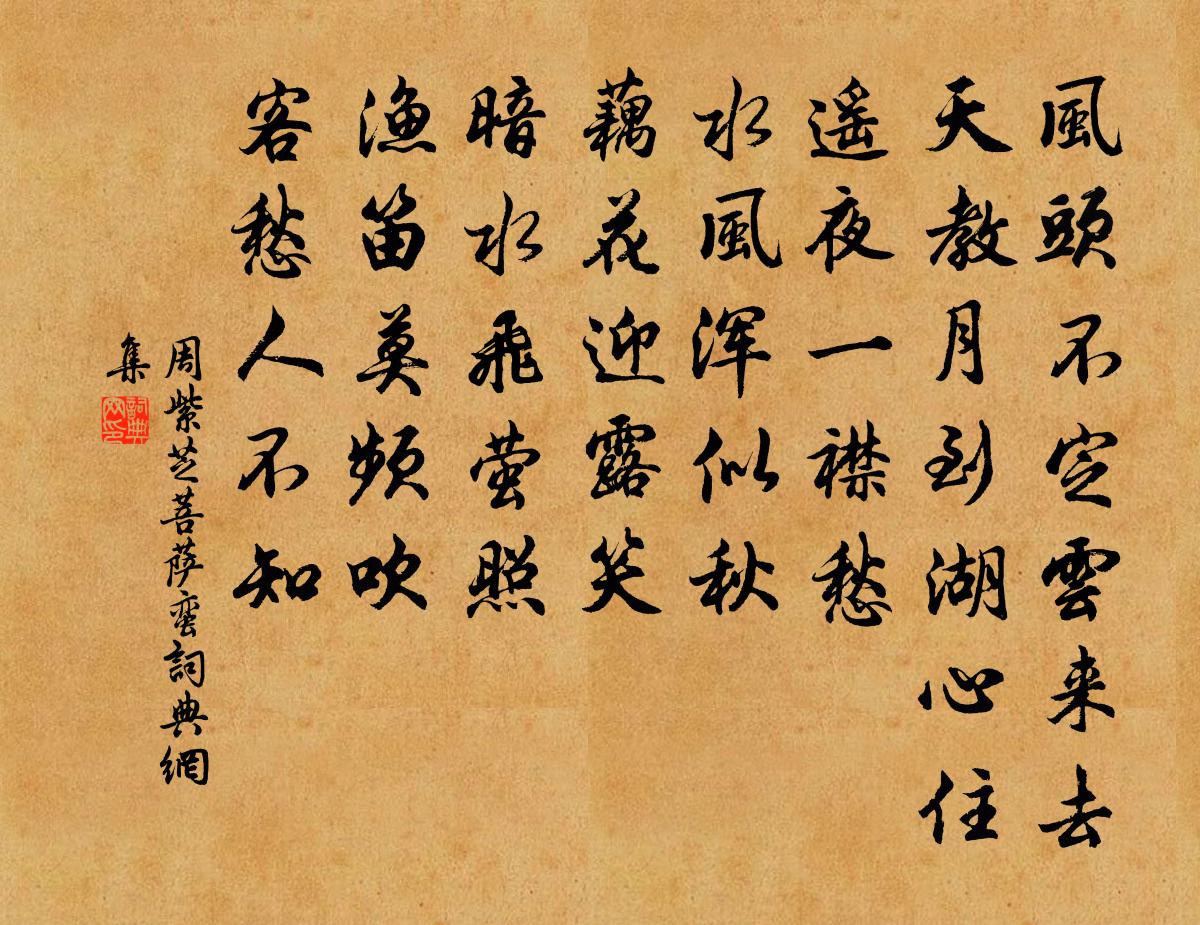 風頭不定雲来去
天教月到湖心住
遥夜一襟愁
水風浑似秋
藕花迎露笑
暗水飛萤照
漁笛莫頻吹
客愁人不知
周紫芝菩萨蛮詞典網
集
詞典
网印